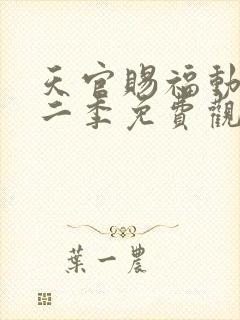 天官賜福動
二季免費觀
葉一農